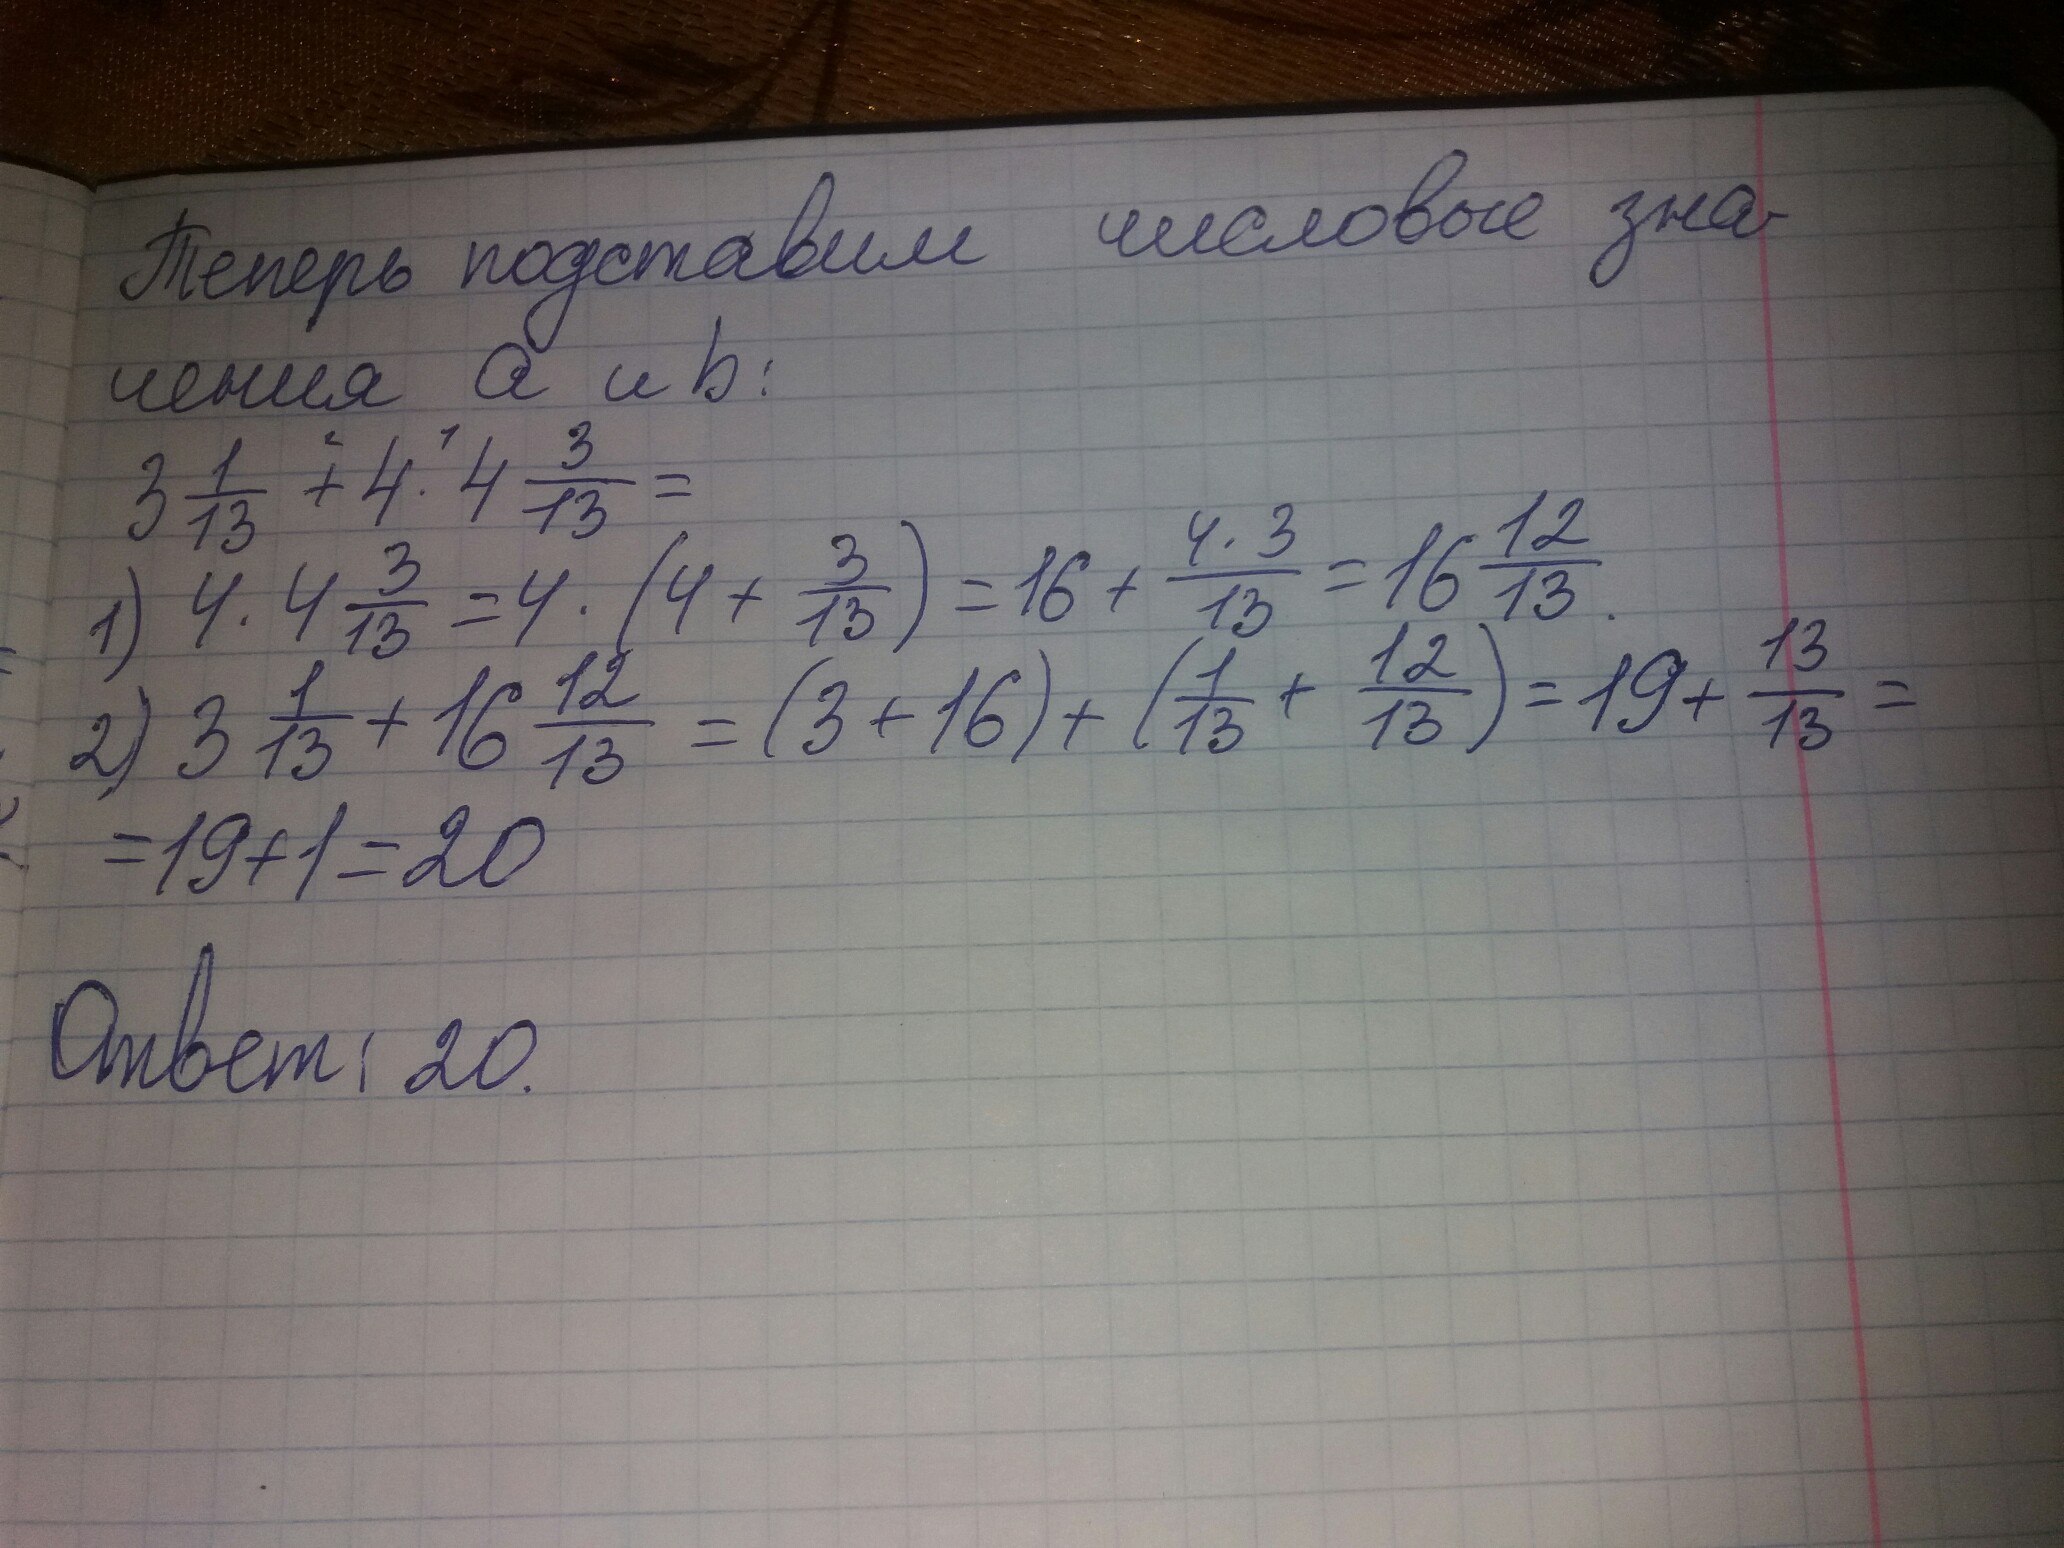 Теперь подставим числовые зна-
чения a и b:
3 1/13 + 4 · 4 3/13 =
1) 4 · 4 3/13 = 4 · (4 + 3/13) = 16 + 4·3/13 = 16 12/13.
2) 3 1/13 + 16 12/13 = (3 + 16) + (1/13 + 12/13) = 19 + 13/13 =
= 19 + 1 = 20
Ответ: 20.